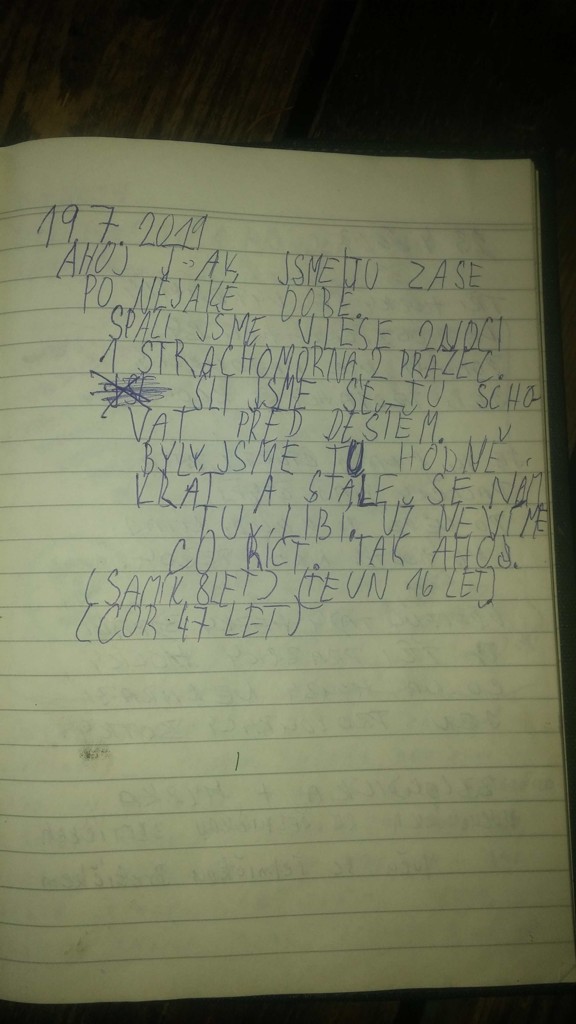 19 7. 2019
AHOJ JSME TU ZASE
PO NĚJAKÉ DOBĚ.
SPALI JSME V LESE 2 NOCI
1 STRACHOMORNA, 2 PRAŽEC.
ŠLI JSME SE TU SCHO
VAT PŘED DEŠTĚM.
BYLY JSME TU HODNĚ
KRÁT A STÁLE SE NÁM
TU LÍBÍ. UŽ NEVÍME
CO ŘÍCT. TAK AHOJ.
(SAMÍK 8 LET) (TEUN 16 LET)
(COR 47 LET)